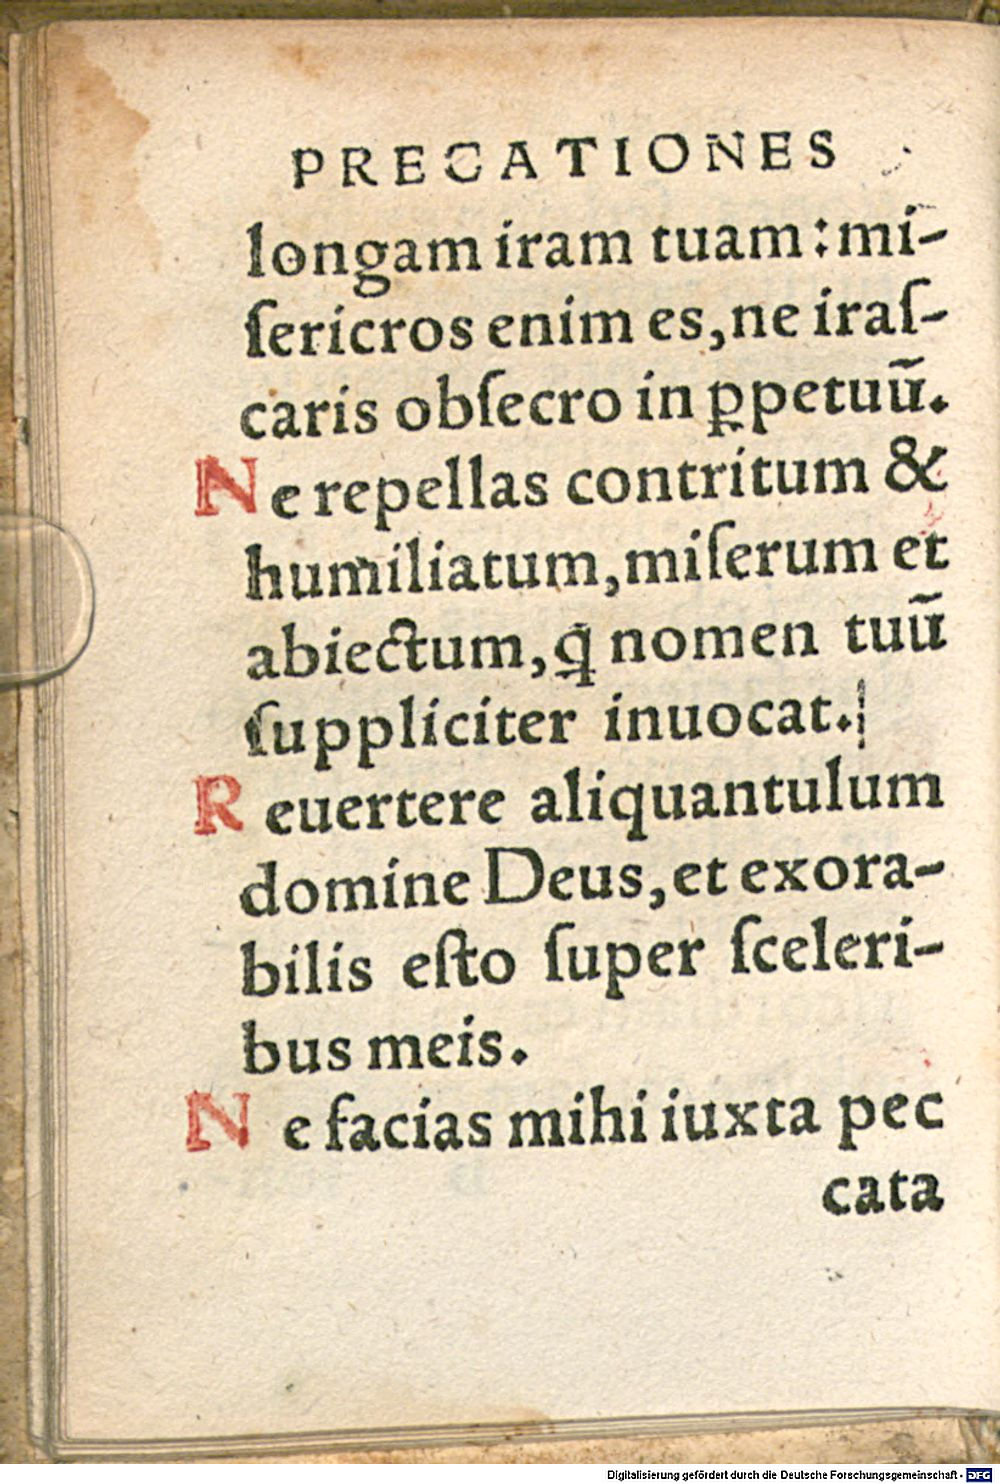 PRECATIONES
longam iram tuam: mi-
ſericros enim es, ne iraſ-
caris obſecro in ꝑpetuū.
Ne repellas contritum &
humiliatum, miſerum et
abiectum, q̄ nomen tuū
ſuppliciter inuocat.
Reuertere aliquantulum
domine Deus, et exora-
bilis eſto ſuper ſceleri-
bus meis.
Ne facias mihi iuxta pec
cata
Digitalisierung gefördert durch die Deutsche Forschungsgemeinschaft - DFG